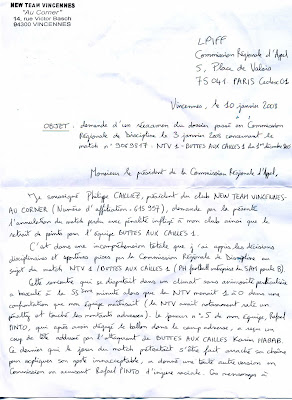 NEW TEAM VINCENNES
"Au Corner"
14, rue Victor Basch
94300 VINCENNES
LPIFF
Commission Régionale d'Appel
5, Place de Valois
75041 PARIS Cedex 01
Vincennes, le 10 janvier 2008
OBJET : demande d'un réexamen du dossier passé en Commission
Régionale de Discipline le 3 janvier 2008 concernant le
match n° NTV 1 - BUTTES AUX CAILLES 1 du 1er décembre
Monsieur le président de la Commission Régionale d'Appel,
Je soussigné Philippe président du club NEW TEAM VINCENNES-
AU CORNER (Numéro d'affiliation : ), demande par la présente
l'annulation du match perdu avec pénalité infligé à mon club ainsi que le
retrait de points pour l'équipe BUTTES AUX CAILLES 1.
C'est dans une incompréhension totale que j'ai appris les décisions
disciplinaires et sportives prises par la Commission Régionale de Discipline au
sujet du match NTV 1 / BUTTES AUX CAILLES 1 ( football du SAM poule B).
Cette rencontre qui se disputait dans un climat sans animosité particulière
a basculé à la 55ème minute alors que les NTV menait 1 à 0 dans une
confrontation que mon équipe maîtrisait (le NTV avait notamment raté un
penalty et touché les montants adverses). Le joueur n° 5 de mon équipe, Rafael
PINTO, qui après avoir dégagé le ballon dans le camp adverse, a reçu un
coup de tête asséné par l'attaquant de BUTTES AUX CAILLES Karim
Ce dernier qui le jour du match prétextait s'être fait arraché sa chaîne
pour expliquer son geste inacceptable, a donné une toute autre version en
Commission en accusant Rafael PINTO d'injure raciale. Ces mensonges à